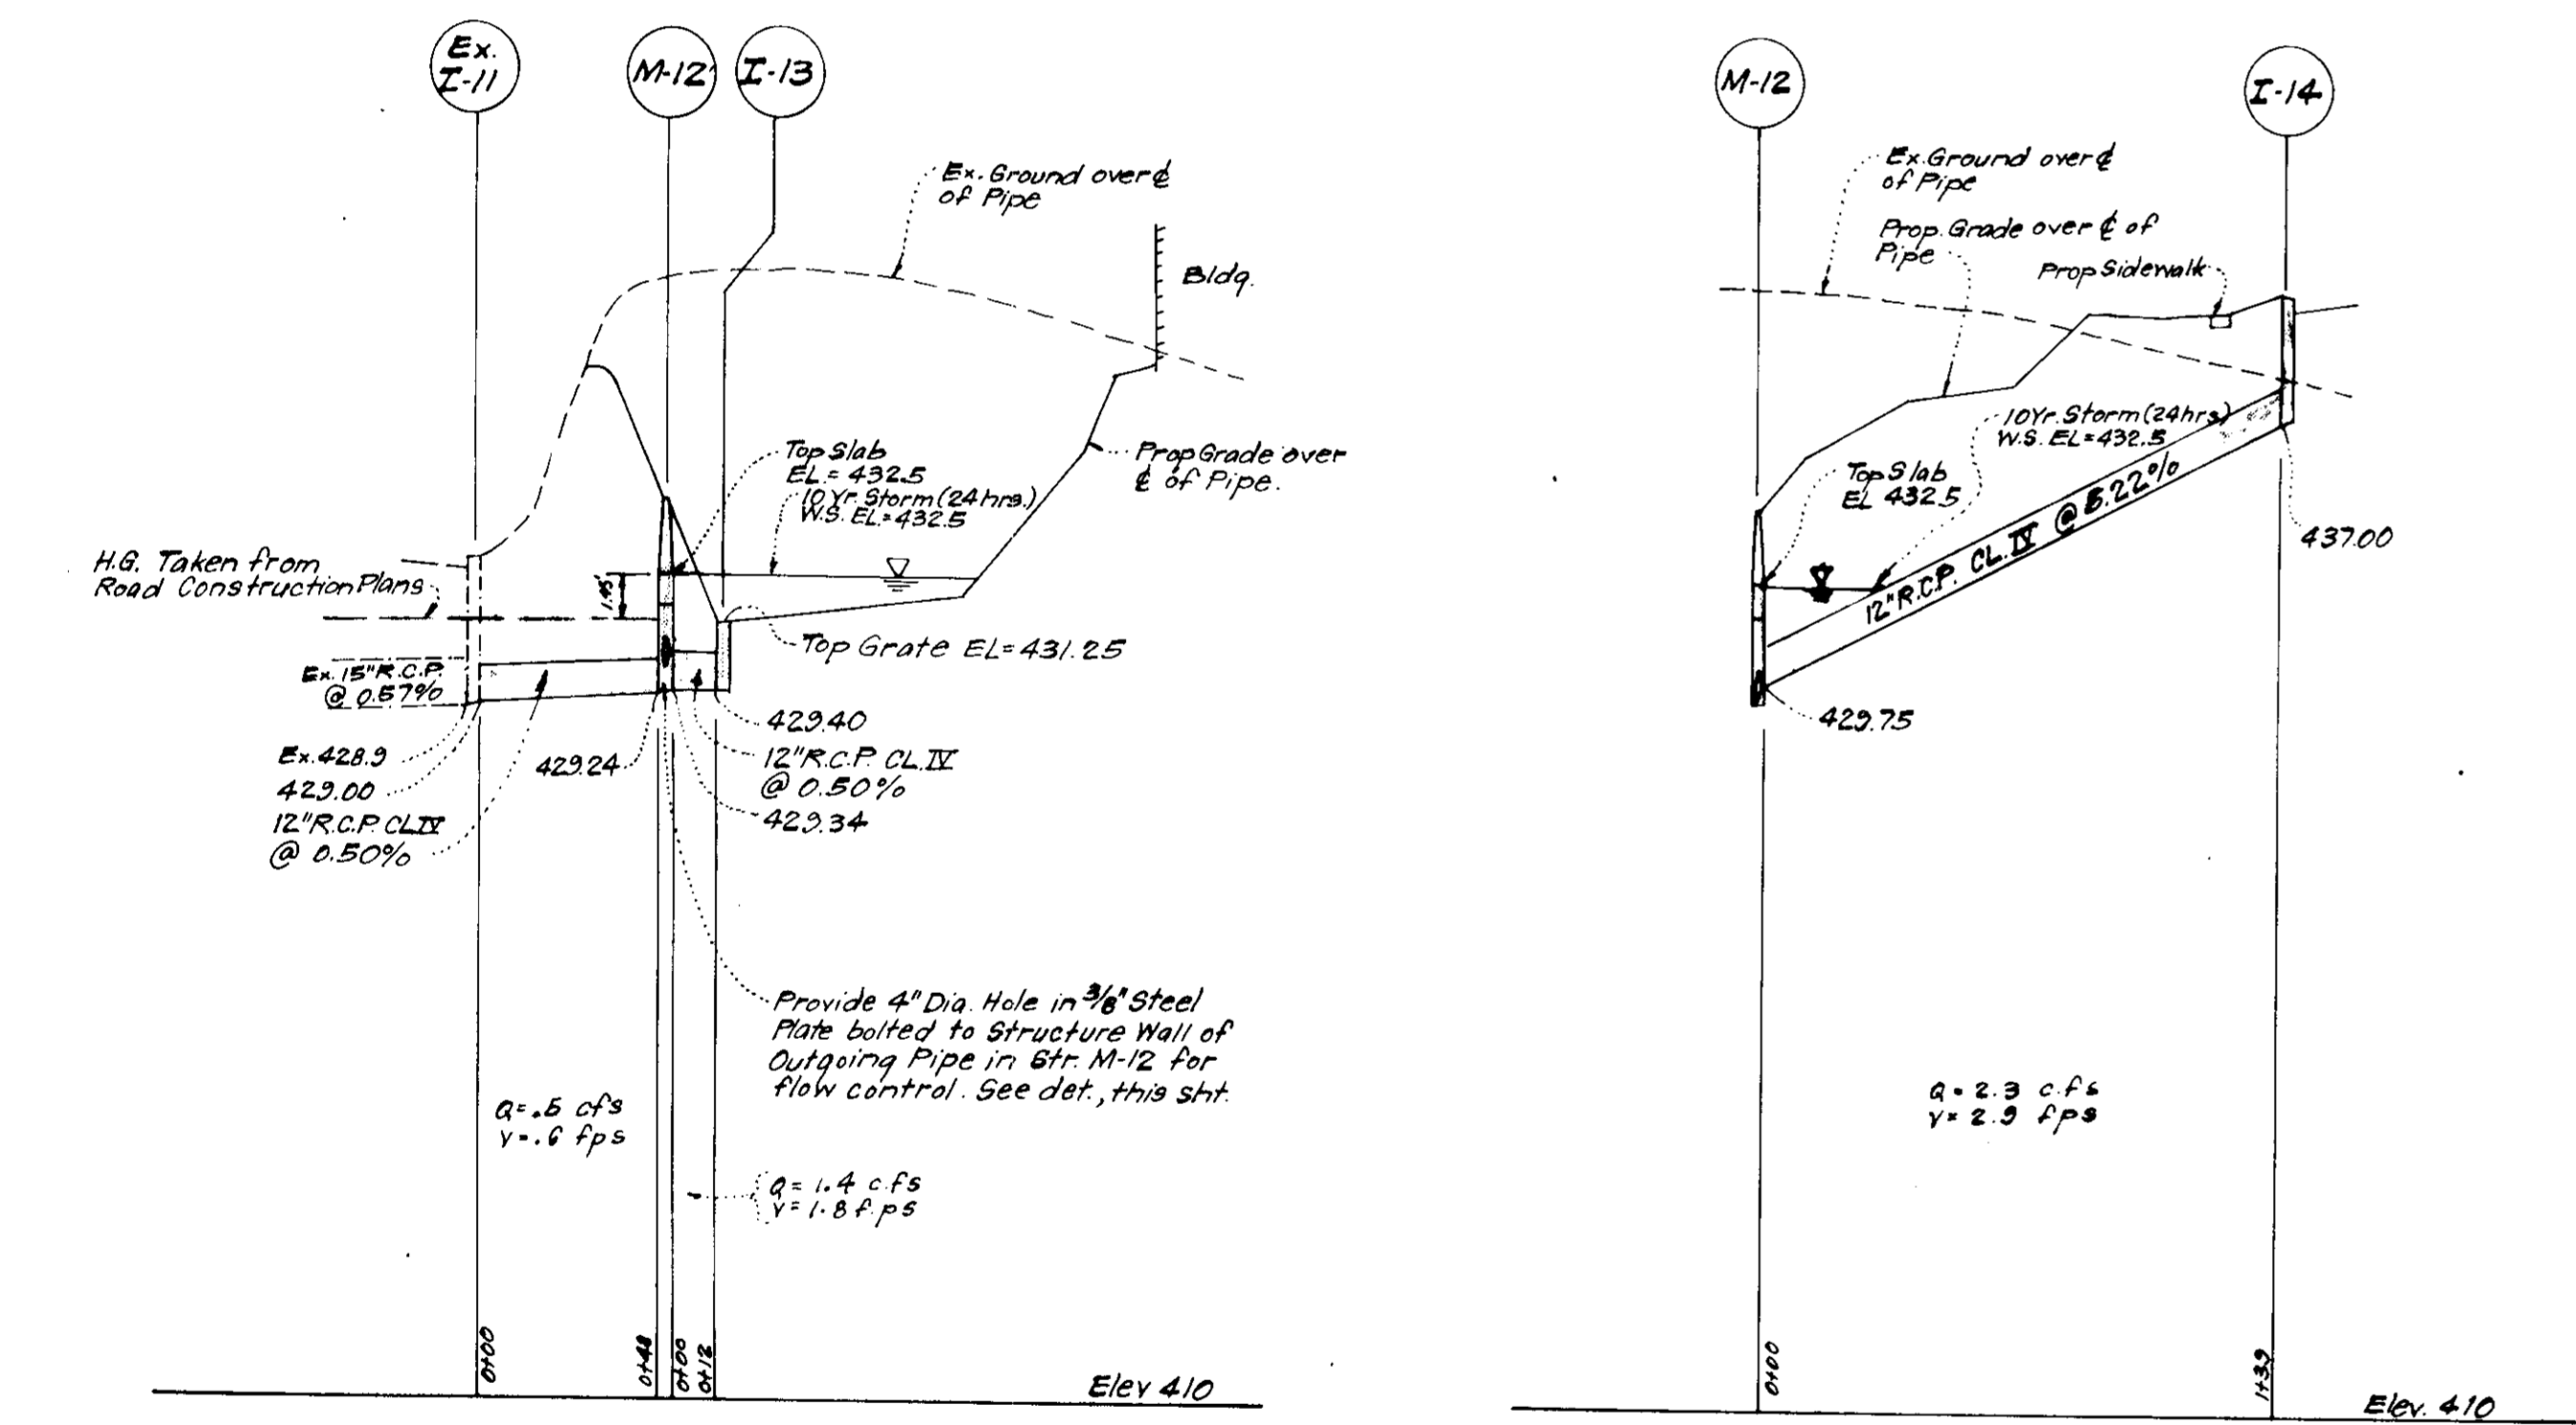 Ex.
I-11
M-12
I-13
Ex. Ground over ℄
of Pipe
Bldg.
Top Slab
EL.= 432.5
10 Yr. Storm (24 hrs.)
W.S. EL.= 432.5
Prop Grade over
℄ of Pipe.
H.G. Taken from
Road Construction Plans
1.45'
Top Grate EL=431.25
Ex. 15" R.C.P.
@ 0.57%
Ex. 428.9
429.00
12" R.C.P. CL IV
@ 0.50%
429.24
429.40
12" R.C.P. CL. IV
@ 0.50%
429.34
Provide 4" Dia. Hole in 3/8" Steel
Plate bolted to Structure Wall of
Outgoing Pipe in Str. M-12 for
flow control. See det., this sht.
Q= .5 cfs
V= .6 fps
Q= 1.4 c.fs
V= 1.8 f.ps
0+00
0+48
0+00
0+12
Elev 410
M-12
I-14
Ex. Ground over ℄
of Pipe
Prop. Grade over ℄ of
Pipe
Prop Sidewalk
10 Yr. Storm (24 hrs)
W.S. EL= 432.5
Top Slab
EL 432.5
12" R.C.P. CL. IV @ 5.22%
437.00
429.75
Q= 2.3 c.fs
V= 2.9 fps
0+00
1+39
Elev. 410